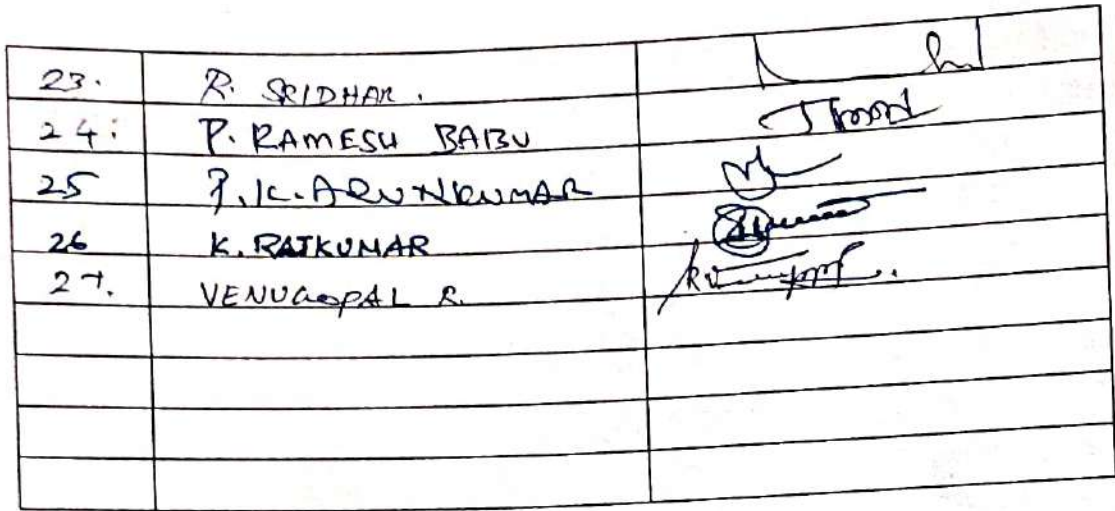 23. R. SRIDHAR.
24: P. RAMESH BABU
25 P.K. ARUNKUMAR
26 K. RAJKUMAR
27. VENUGOPAL R.